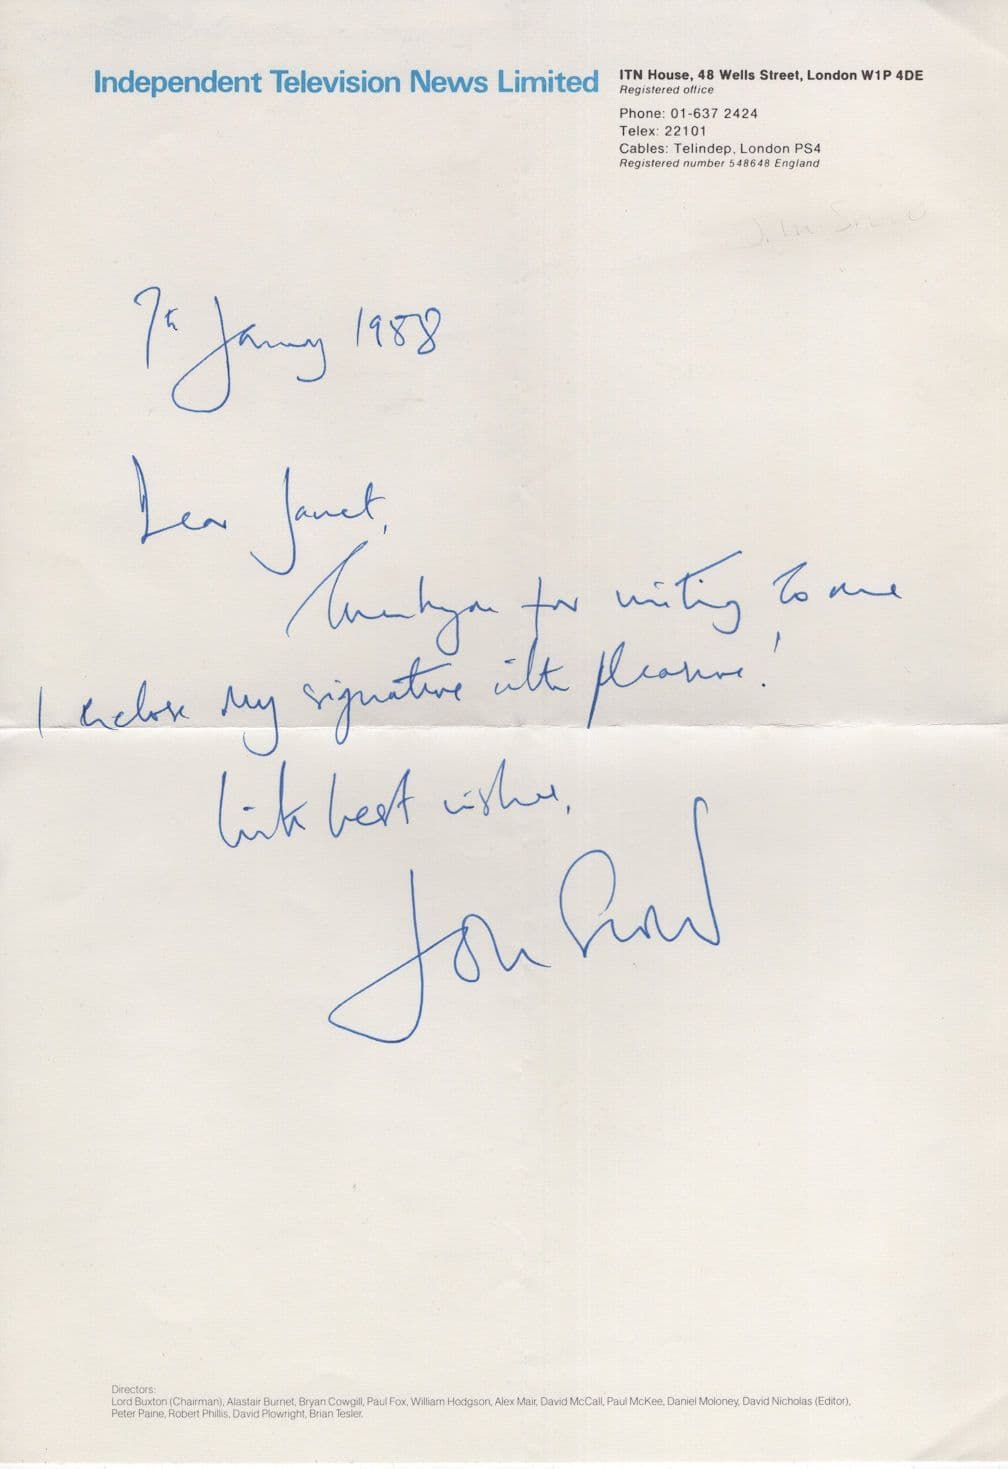 Independent Television News Limited
ITN House, 48 Wells Street, London W1P 4DE
Registered office
Phone: 01-637 2424
Telex: 22101
Cables: Telindep, London PS4
Registered number 548648 England
7th January 1988
Dear Janet,
Thankyou for writing to me
I enclose my signature with pleasure!
With best wishes,
Jon Snow
Directors:
Lord Buxton (Chairman), Alastair Burnet, Bryan Cowgill, Paul Fox, William Hodgson, Alex Mair, David McCall, Paul McKee, Daniel Moloney, David Nicholas (Editor),
Peter Paine, Robert Phillis, David Plowright, Brian Tesler.